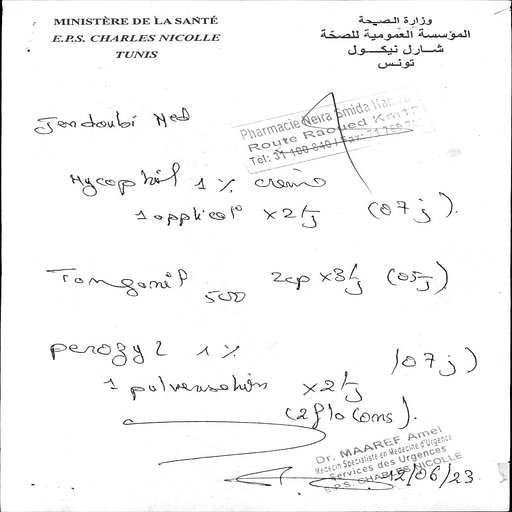 MINISTÈRE DE LA SANTÉ
E.P.S. CHARLES NICOLLE
TUNIS
وزارة الصحية
المؤسسة العمومية للصحة
شارل نيكول
تونس
Jendoubi Med
Pharmacie Neira Smida
Route Raoued Km
Tél: 31 100 840 / Fax: 71 769
1 % crème
1 applicat° x2/j (07 j).
Tanganil 500 2cp x3/j (05j)
1 % (07 j)
1 pulverisation x2/j
(2 flacons).
Dr. MAAREF Amel
Médecin Spécialiste en Médecine d'Urgence
Services des Urgences
E.P.S. CHARLES NICOLLE
12/06/23